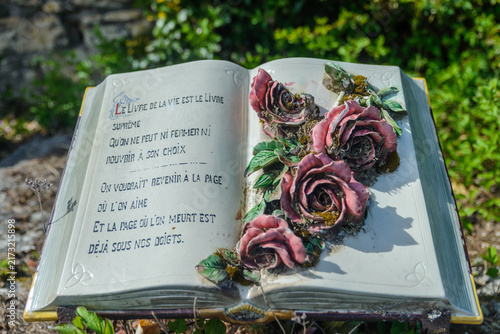 Le Livre de la vie est le Livre
suprême
Qu'on ne peut ni fermer ni
rouvrir à son choix
On voudrait revenir à la page
où l'on aime
Et la page où l'on meurt est
déjà sous nos doigts.
Adobe Stock | #2173215898